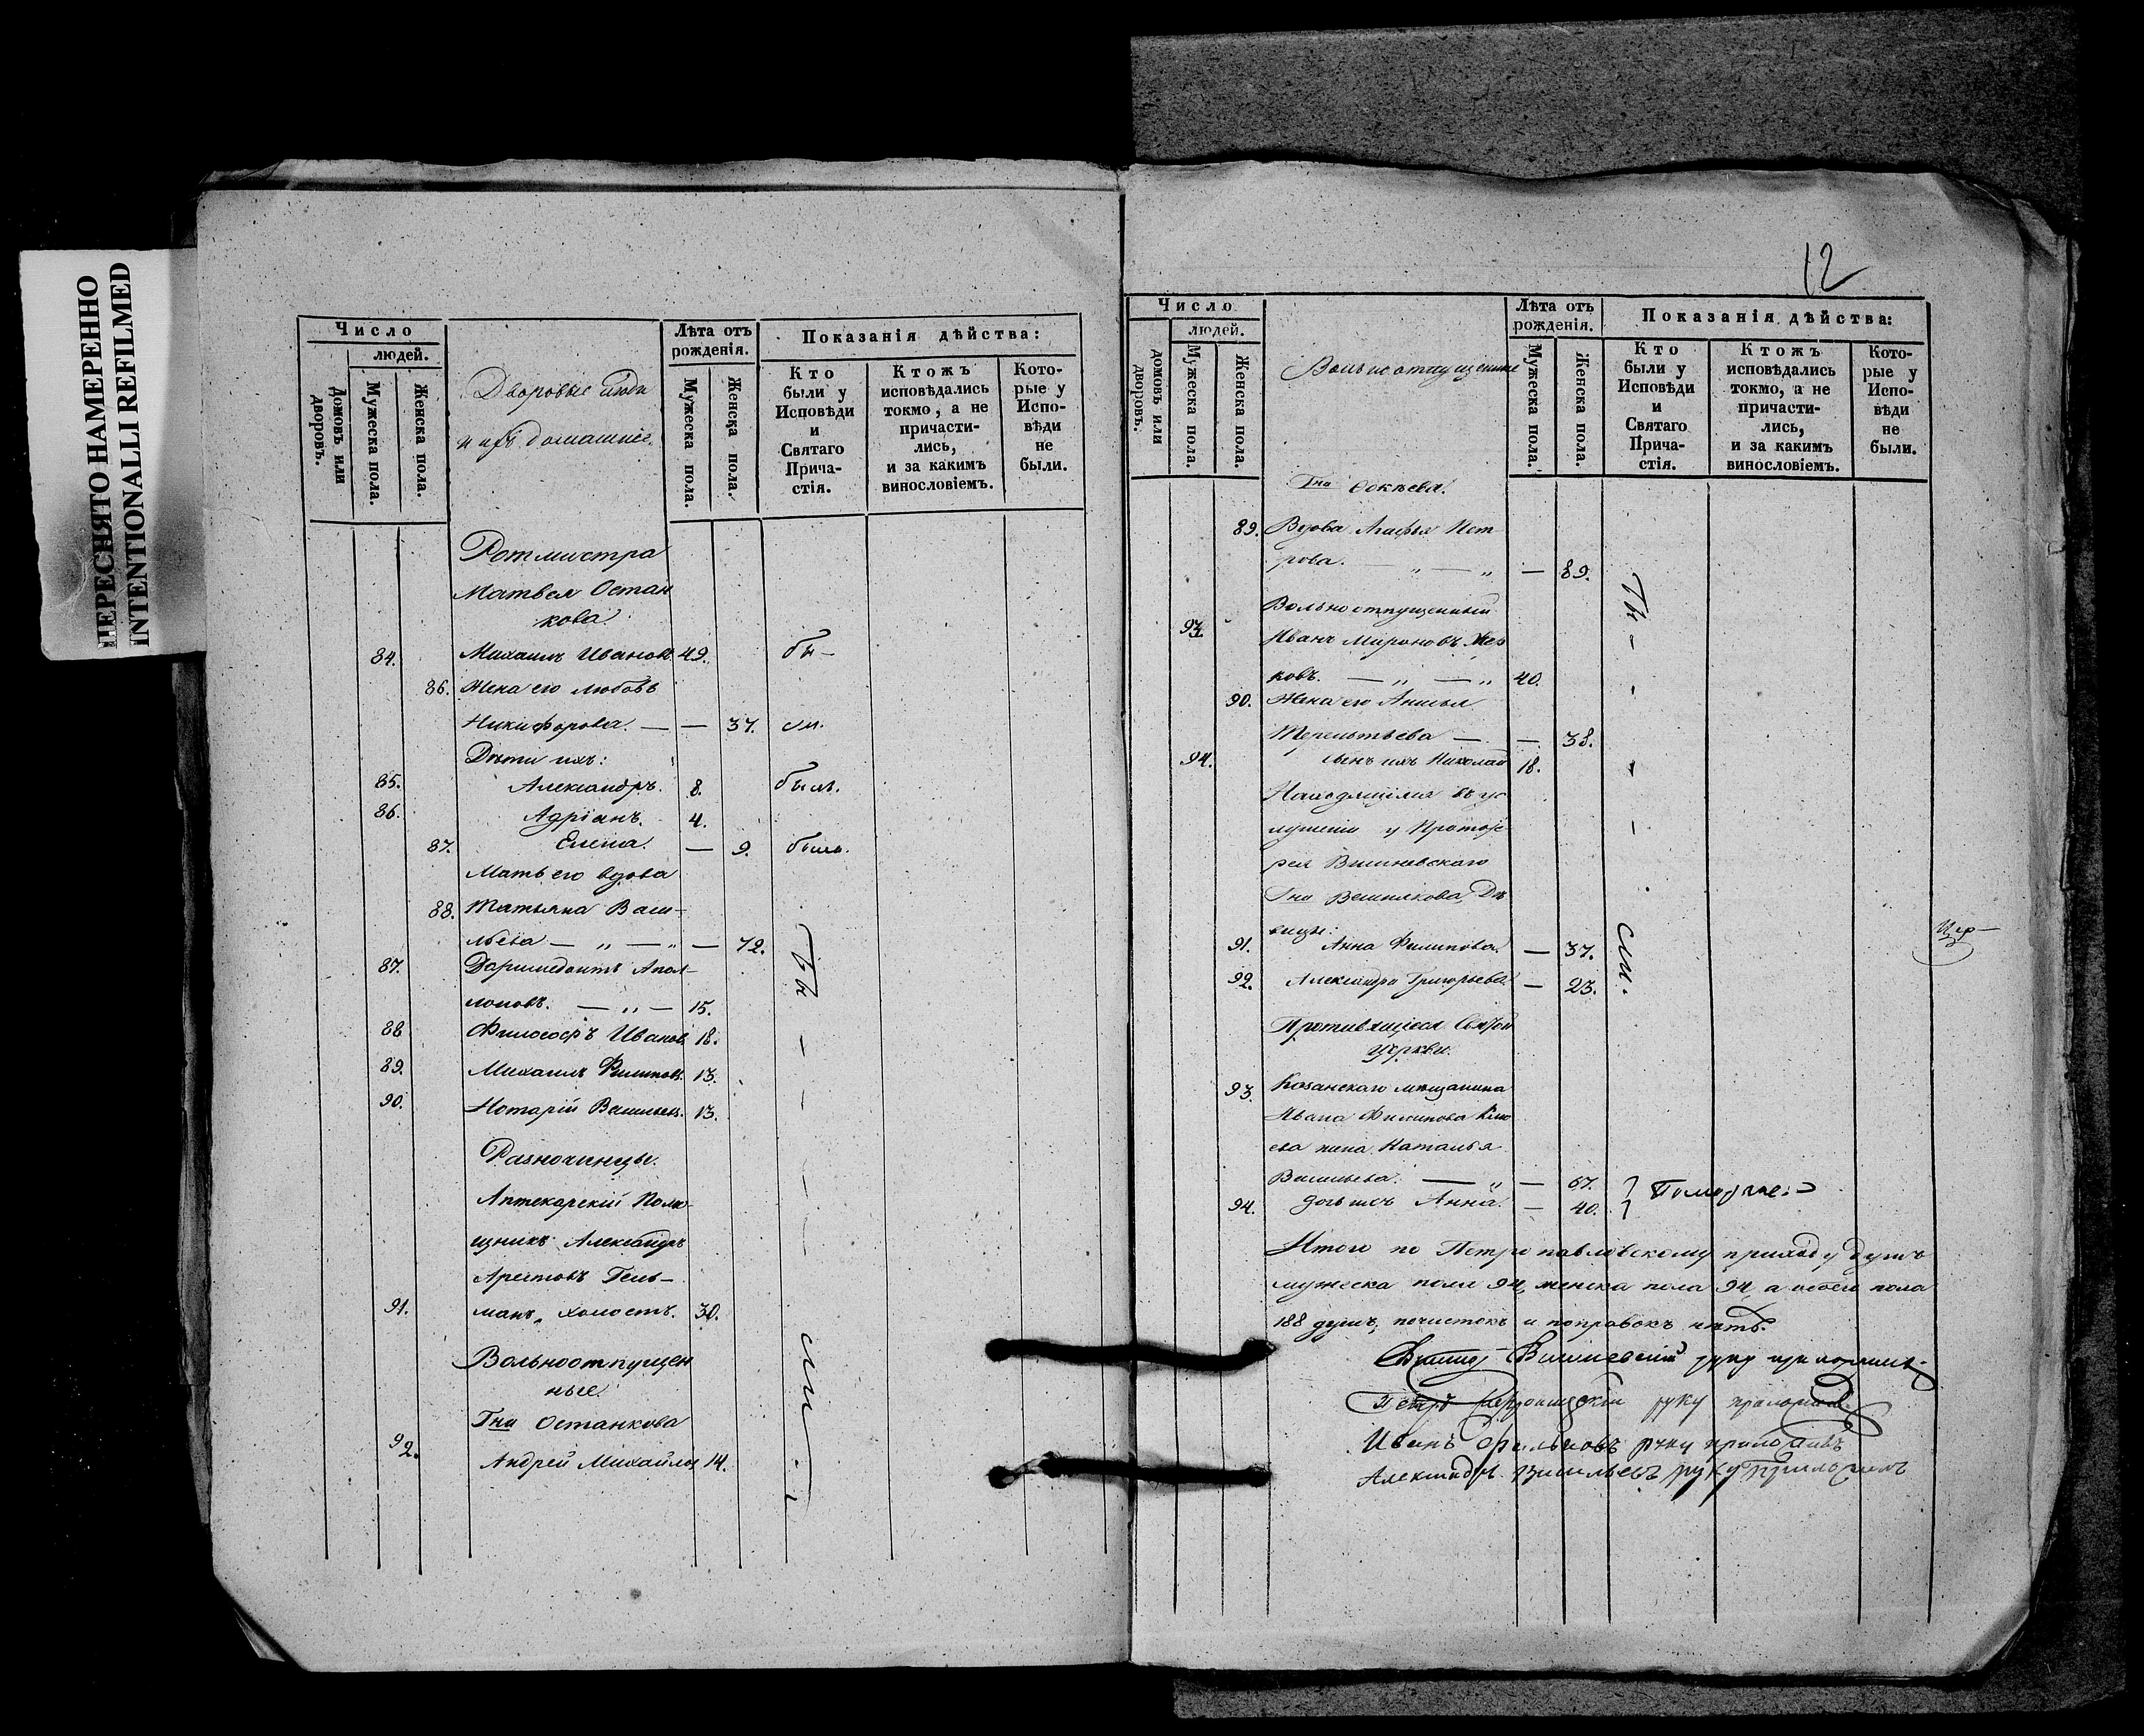 ПЕРЕСНЯТО НАМЕРЕННО
INTENTIONALLI REFILMED
Число
людей.
Домовъ или дворовъ.
Мужеска пола.
Женска пола.
Дворовые люди
и ихъ домашніе.
Лѣта отъ рожденія.
Мужеска пола.
Женска пола.
Показанія дѣйства:
Кто были у Исповѣди и Святаго Прича-стія.
Ктожъ исповѣдались токмо, а не причасти-лись, и за какимъ винословіемъ.
Кото-рые у Испо-вѣди не были.
Ротмистра
Матвея Остан
кова.
84. Михаилъ Иванов. 49. бы –
86. Жена его Любовь
Никифорова. — — 37. ли.
Дѣти ихъ:
85. Александръ. 8. былъ.
86. Адріанъ. 4.
87. Елена. — 9. была.
Мать его вдова
88. Татьяна Васи–
льева — „ — „ — 72.
87. Апол–
лоновъ. — „ — 15.
бы –
88 Философъ Иванов 18.
89. Михаилъ Филипов. 13.
90. Нотарій Васильев. 13.
Разночинцы.
Аптекарскій Помо–
щникъ Александръ
Гель–
91. манъ, холостъ. 30.
ли.
Вольноотпущен
ные.
Гна Останкова
92. Андрей Михайлов 14.
12
Число
людей.
домовъ или дворовъ.
Мужеска пола.
Женска пола.
Вольноотпущенные
Лѣта отъ рожденія.
Мужеска пола.
Женска пола.
Показанія дѣйства:
Кто были у Исповѣди и Святаго Прича-стія.
Ктожъ исповѣдались токмо, а не причасти-лись, и за какимъ винословіемъ.
Кото-рые у Испо-вѣди не были.
Гна
89. Вдова Агафья Пет
рова. — „ — „ — 89.
бы –
Вольноотпущенный
93. Иванъ Мироновъ
ковъ. — „ — „ 40.
90. Жена его Анисья
Терентьева — — 38.
94. сынъ ихъ Николай 18.
Находящіяся въ ус
луженіи у Протоіе
рея Вишневскаго
Гна Дѣ
вицы:
91. Анна Филипова. — 37.
ли.
92. Александра Григорьева. — 23.
Противящіеся Святой
Церкви.
93. Козанскаго мѣщанина
Ивана Филипова
ева жена Наталья
Васильева. — „ — 67.
94. дочь ихъ Анна. — 40.
Итого по Петропавловскому приходу душъ
мужеска пола 94, женска пола 94, а обоего пола
188 душъ; почистокъ и поправокъ нѣтъ.
Вишневскій руку приложилъ
Петръ руку приложилъ
Иванъ руку приложилъ
Александръ Васильевъ руку приложилъ